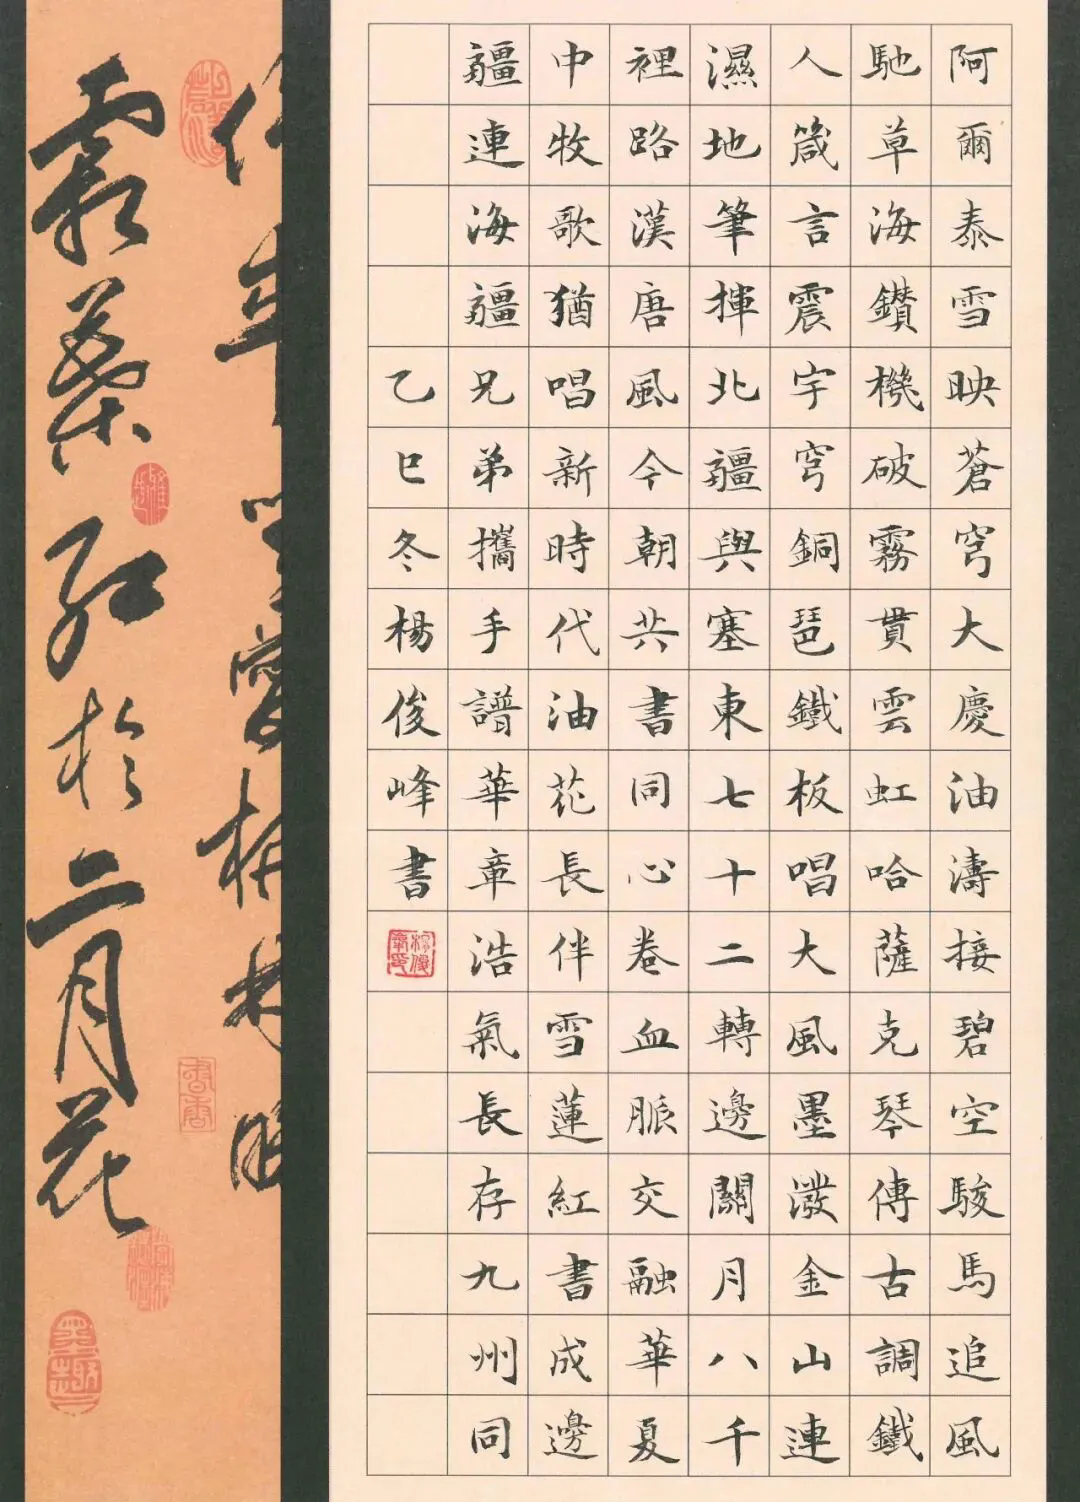 阿爾泰雪映蒼穹大慶油濤接碧空駿馬追風
馳草海鑽機破霧貫雲虹哈薩克琴傳古調鐵
人箴言震宇穹銅琶鐵板唱大風墨潑金山連
濕地筆揮北疆與塞東七十二轉邊關月八千
裡路漢唐風今朝共書同心卷血脈交融華夏
中牧歌猶唱新時代油花長伴雪蓮紅書成邊
疆連海疆兄弟攜手譜華章浩氣長存九州同
乙巳冬楊俊峰書
霜葉紅於二月花